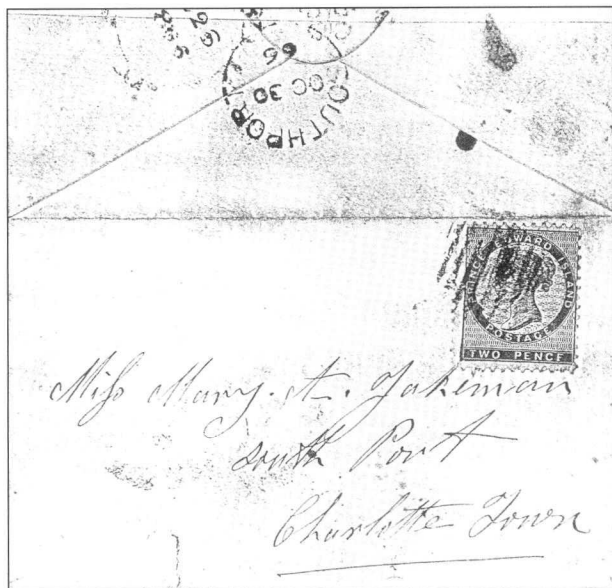 SOUTHPOR
OC 30
66
PRINCE EDWARD ISLAND
POSTAGE
TWO PENCE
Miss Mary. A. Yakeman
South Port
Charlotte Town